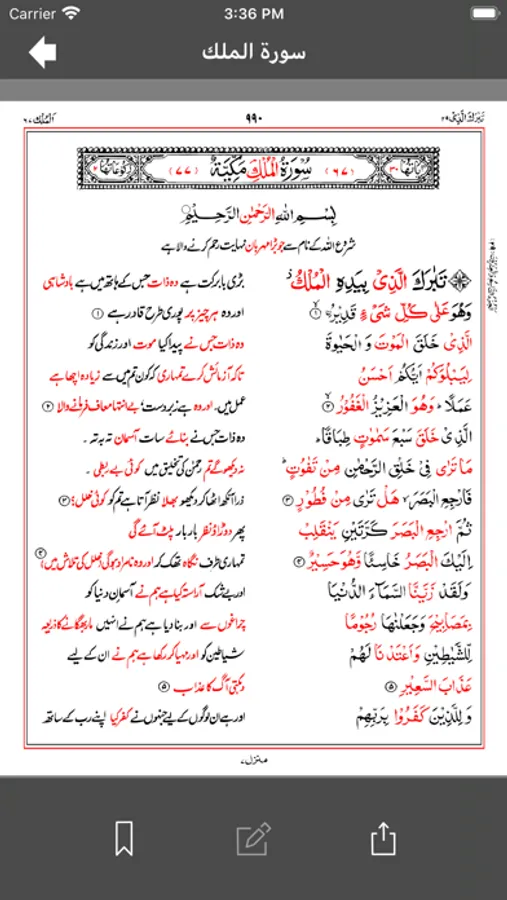 Carrier 3:36 PM
سورة الملك
تَبٰرَكَ الَّذِیْ ٢٩ ٩٩٠ اَلْمُلْك ٦٧
اٰیَاتُهَا ٣٠ (٦٧) سُوْرَةُ الْمُلْكِ مَكِّیَّةٌ (٧٧) رُكُوْعَاتُهَا ٢
بِسْمِ اللّٰهِ الرَّحْمٰنِ الرَّحِیْمِ
شروع اللہ کے نام سے جو بڑا مہربان نہایت رحم کرنے والا ہے
تَبٰرَكَ الَّذِیْ بِیَدِهِ الْمُلْكُ بڑی بابرکت ہے وہ ذات جس کے ہاتھ میں ہے بادشاہی
وَهُوَ عَلٰی كُلِّ شَیْءٍ قَدِیْرُ ۙ ١ اور وہ ہر چیز پر پوری طرح قادر ہے ١
الَّذِیْ خَلَقَ الْمَوْتَ وَ الْحَیٰوةَ وہ ذات جس نے پیدا کیا موت اور زندگی کو
لِیَبْلُوَكُمْ اَیُّكُمْ اَحْسَنُ تاکہ آزمائش کرے تمہاری کہ کون تم میں سے زیادہ اچھا ہے
عَمَلًا ؕ وَهُوَ الْعَزِیْزُ الْغَفُوْرُ ۙ ٢ عمل میں، اور وہ ہے زبردست، بے انتہا معاف فرمانے والا ٢
الَّذِیْ خَلَقَ سَبْعَ سَمٰوٰتٍ طِبَاقًا ؕ وہ ذات جس نے بنائے سات آسمان تہ بہ تہ۔
مَا تَرٰی فِیْ خَلْقِ الرَّحْمٰنِ مِنْ تَفٰوُتٍ ؕ نہ دیکھو گے تم رحمٰن کی تخلیق میں کوئی بے ربطی۔
فَارْجِعِ الْبَصَرَ ۙ هَلْ تَرٰی مِنْ فُطُوْرٍ ٣ ذرا آنکھ اٹھا کر دیکھو بھلا نظر آتا ہے تم کو کوئی خلل؟ ٣
ثُمَّ ارْجِعِ الْبَصَرَ كَرَّتَیْنِ یَنْقَلِبْ پھر دوڑاؤ نظر بار بار پلٹ آئے گی
اِلَیْكَ الْبَصَرُ خَاسِئًا وَّهُوَ حَسِیْرٌ ٤ تمہاری طرف نگاہ تھک کر اور وہ نامراد ہوگی (خلل کی تلاش میں) ٤
وَلَقَدْ زَیَّنَّا السَّمَآءَ الدُّنْیَا اور بے شک آراستہ کیا ہے ہم نے آسمانِ دنیا کو
بِمَصَابِیْحَ وَجَعَلْنٰهَا رُجُوْمًا چراغوں سے اور بنا دیا ہے ہم نے انہیں مار بھگانے کا ذریعہ
لِّلشَّیٰطِیْنِ وَاَعْتَدْنَا لَهُمْ شیاطین کو اور مہیا کر رکھا ہے ہم نے ان کے لیے
عَذَابَ السَّعِیْرِ ٥ دہکتی آگ کا عذاب ٥
وَ لِلَّذِیْنَ كَفَرُوْا بِرَبِّهِمْ اور ہے ان لوگوں کے لیے جنہوں نے کفر کیا اپنے رب کے ساتھ
منزل ٧